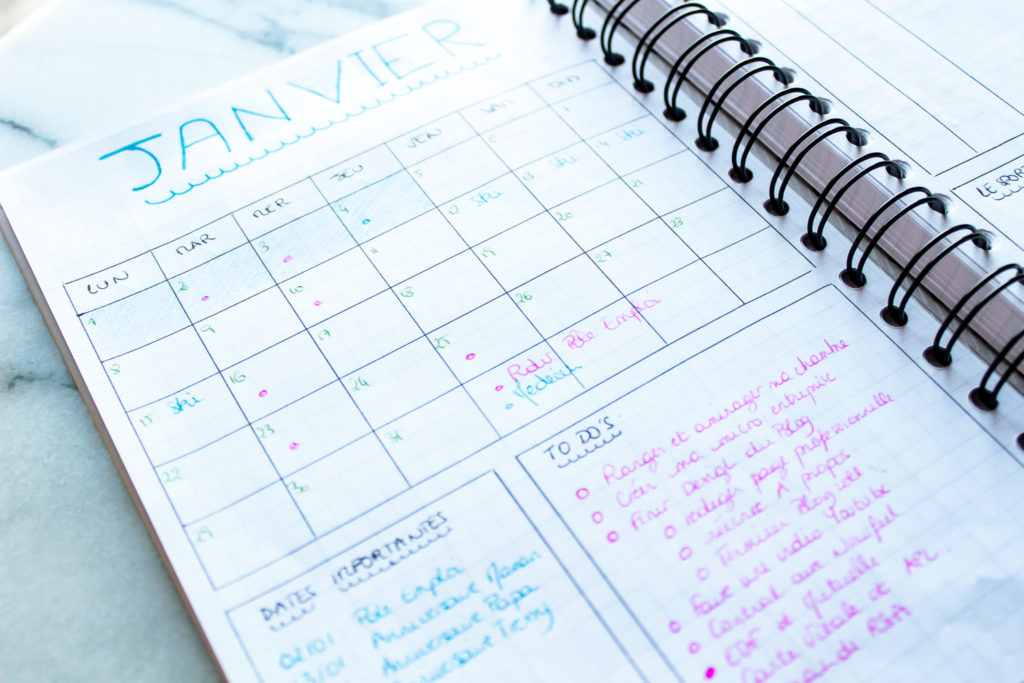 JANVIER
LUN MAR MER JEU VEN SAM DIM
1 2 3 4 5 6 7
8 9 10 11 12 Ski 13 Ski 14 Ski
15 Ski 16 17 18 19 20 21
22 23 24 25 26 27 28
29 30 31
Pôle Emploi
LE SPORT
TO DO'S
Ranger et aménager ma chambre
Créer ma micro entreprise
Finir Design du Blog
rédiger page professionnelle
réécrire A propos
Terminer Blog
Faire une vidéo Youtube
Contrat
EDF et Mutuelle
Carte Vitale et APL
DATES IMPORTANTES
02/01 Pôle Emploi
/01 Anniversaire Maman
Anniversaire Papa
Anniversaire